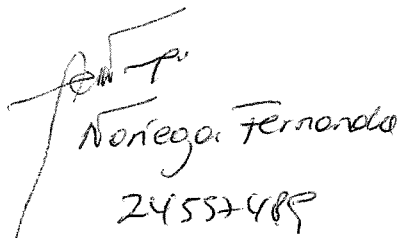 Noriega Fernanda
24557489